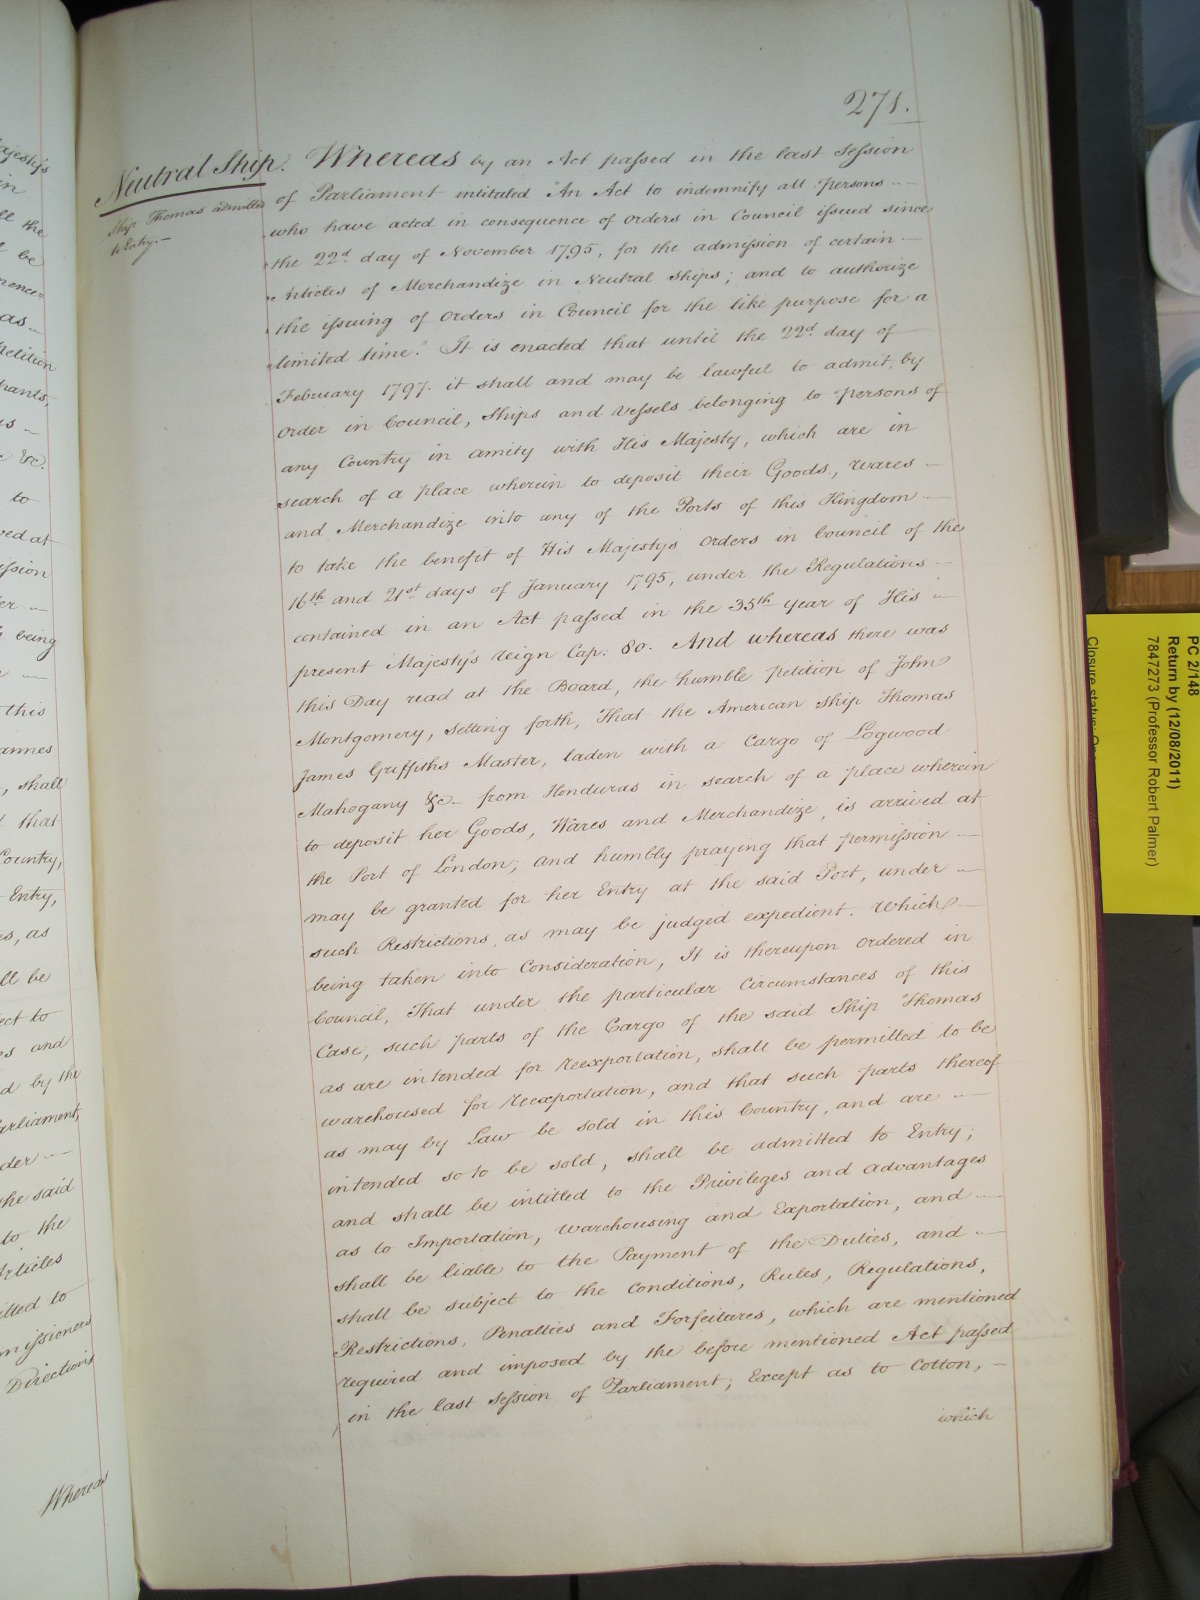 271.
Neutral Ship.
Ship Thomas admitted
to Entry.—
Whereas by an Act passed in the last Session
of Parliament intituled "An Act to indemnify all persons
who have acted in consequence of Orders in Council issued since
the 22d day of November 1795, for the admission of certain
Articles of Merchandize in Neutral Ships; and to authorize
the issuing of Orders in Council for the like purpose for a
limited time." It is enacted that until the 22d day of
February 1797. it shall and may be lawful to admit, by
Order in Council, Ships and Vessels belonging to persons of
any Country in amity with His Majesty, which are in
search of a place wherein to deposit their Goods, Wares
and Merchandize into any of the Ports of this Kingdom
to take the benefit of His Majesty's Orders in Council of the
16th and 21st days of January 1795, under the Regulations
contained in an Act passed in the 35th year of His
present Majesty's reign Cap: 80. And whereas there was
this Day read at the Board, the humble petition of John
Montgomery, setting forth, That the American Ship Thomas
James Griffiths Master, laden with a Cargo of Logwood
Mahogany &c— from Honduras in search of a place wherein
to deposit her Goods, Wares and Merchandize, is arrived at
the Port of London; and humbly praying that permission
may be granted for her Entry at the said Port, under
such Restrictions, as may be judged expedient. Which
being taken into Consideration, It is thereupon Ordered in
Council, That under the particular Circumstances of this
Case, such parts of the Cargo of the said Ship Thomas
as are intended for Reexportation, shall be permitted to be
warehoused for Reexportation, and that such parts thereof
as may by Law be sold in this Country, and are
intended so to be sold, shall be admitted to Entry;
and shall be intitled to the Privileges and Advantages
as to Importation, Warehousing and Exportation, and
shall be liable to the Payment of the Duties, and
shall be subject to the Conditions, Rules, Regulations,
Restrictions, Penalties and Forfeitures, which are mentioned
required and imposed by the before mentioned Act passed
in the last Session of Parliament; Except as to Cotton,
which
all the
be
to
being
this
shall
that
Country,
Entry,
as
ll be
and
d by the
the said
to the
Articles
itted to
Directions
Whereas
PC 2/148
Return by (12/08/2011)
7847273 (Professor Robert Palmer)
Closure status: